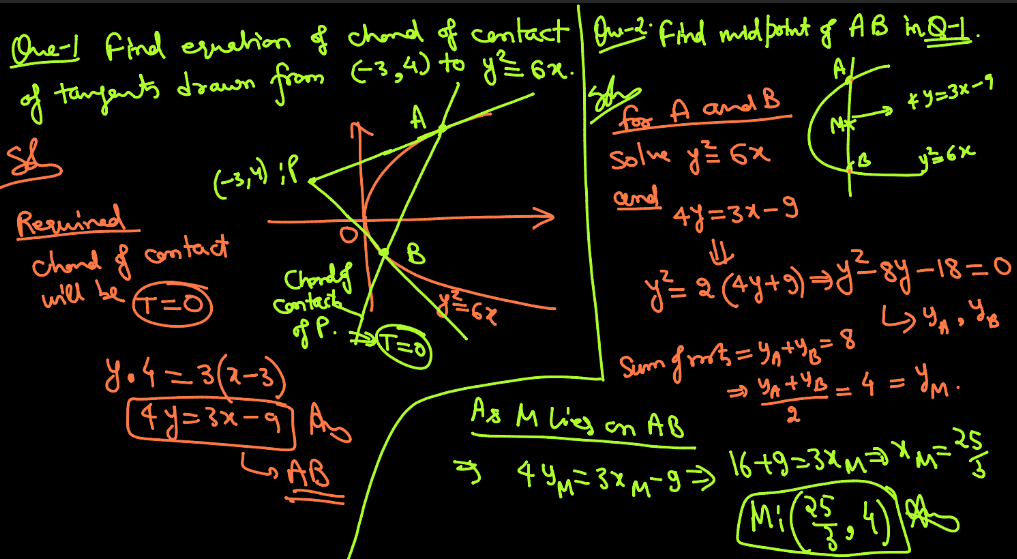 Que-1 Find equation of chord of contact
of tangents drawn from (-3,4) to y²=6x.
Sol
(-3,4) ; P
A
O
B
y²=6x
Chord of
contact
of P. ⇒ T=0
Required
chord of contact
will be T=0
y.4=3(x-3)
4y=3x-9 Ans
↳ AB
Que-2: Find midpoint of AB in Q-1.
Soln
A
M
B
→ 4y=3x-9
y²=6x
for A and B
Solve y²=6x
and 4y=3x-9
⇓
y²=2(4y+9) ⇒ y²-8y-18=0
↳ y_A, y_B
Sum of roots = y_A+y_B = 8
⇒ (y_A+y_B)/2 = 4 = y_M.
As M lies on AB
⇒ 4y_M=3x_M-9 ⇒ 16+9=3x_M ⇒ x_M=25/3
M: (25/3, 4) Ans